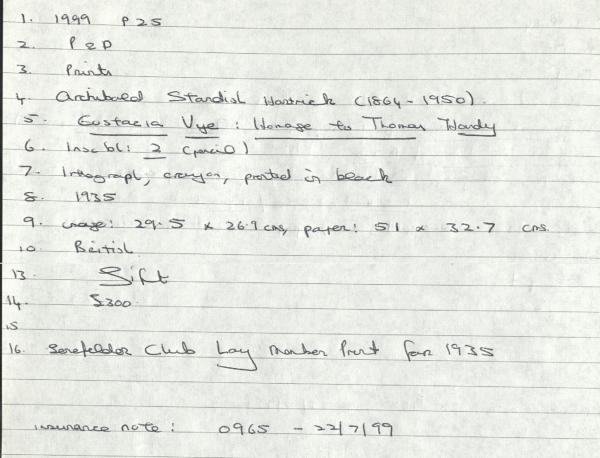 1. 1999 P25
2. P&D
3. Prints
4. Archibald Standish Hartrick (1864-1950).
5. Eustacia Vye: Homage to Thomas Hardy
6. Inscbl: 2 (pencil)
7. lithograph, crayon, printed in black
8. 1935
9. image: 29.5 x 26.9 cms, paper: 51 x 32.7 cms.
10. British
13. Gift
14. £300
15
16. Senefelder Club Lay Member Print for 1935
insurance note: 0965 - 22/7/99